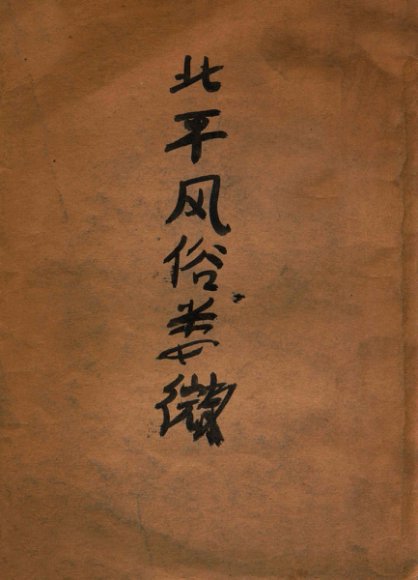 北平风俗类徵